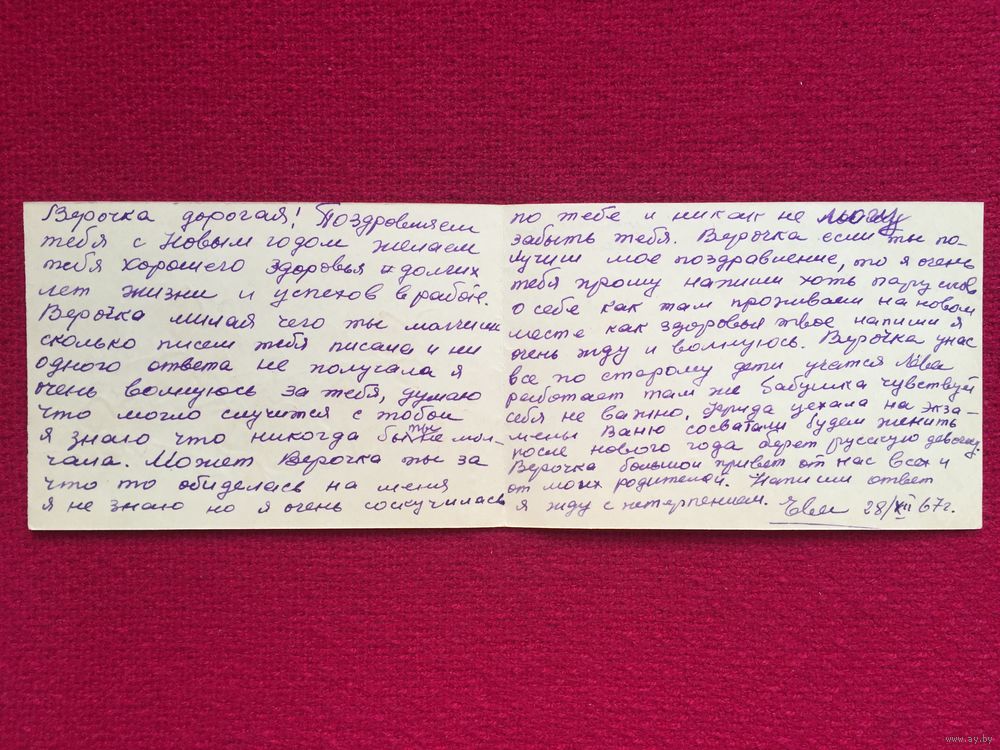 Верочка дорогая! Поздровляем
тебя с Новым годом желаем
тебя хорошего здоровья и долгих
лет жизни и успехов в работе.
Верочка милая чего ты молчиш
сколько писем тебя писала и ни
одного ответа не получала я
очень волнуюсь за тебя, думаю
что могло случится с тобой
я знаю что никогда бы ты не мол-
чала. Может Верочка ты за
что то обиделась на меня
я не знаю но я очень соскучилась
по тебе и никак не могу
забыть тебя. Верочка если ты по-
лучиш мое поздравление, то я очень
тебя прошу напиши хоть пару слов
о себе как там проживаеш на новом
месте как здоровья твое напиши я
очень жду и волнуюсь. Верочка у нас
все по старому дети учатся Лёва
работает там же бабушка чувствует
себя не важно. уехала на экза-
мены Ваню сосватали будем женить
после нового года берет русскую девочку.
Верочка большой привет от нас всех и
от моих родителей. Напиши ответ
я жду с нетерпением. 28/XII 67г.
www.ay.by